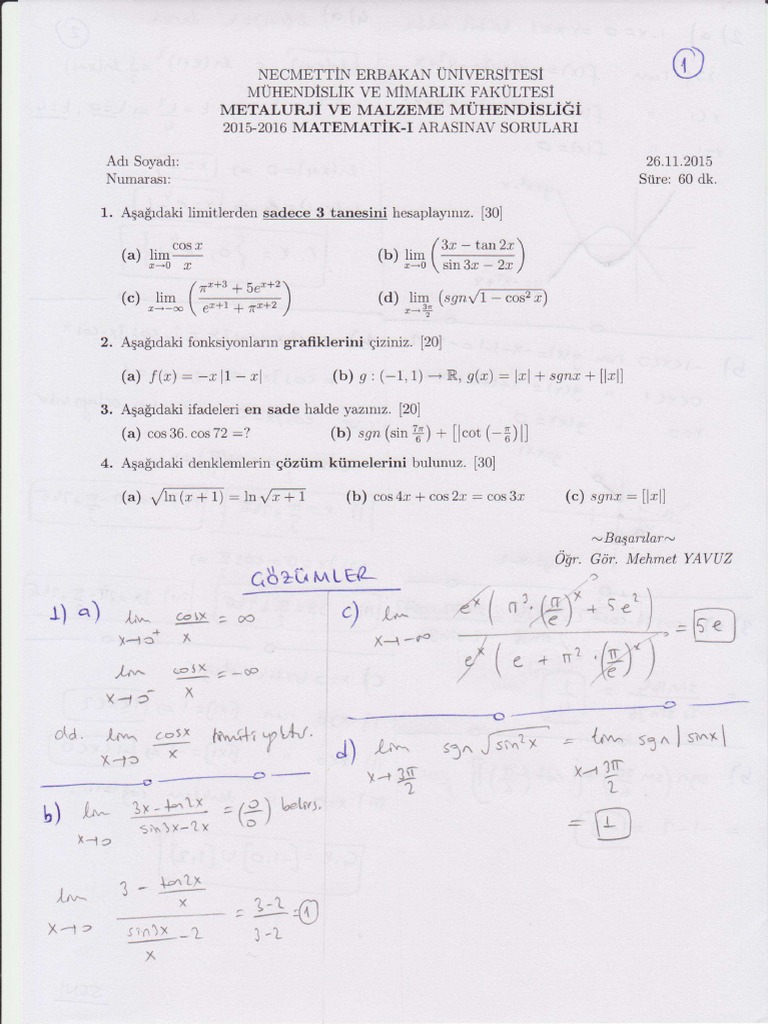 1
NECMETTİN ERBAKAN ÜNİVERSİTESİ
MÜHENDİSLİK VE MİMARLIK FAKÜLTESİ
METALURJİ VE MALZEME MÜHENDİSLİĞİ
2015-2016 MATEMATİK-I ARASINAV SORULARI
Adı Soyadı: 26.11.2015
Numarası: Süre: 60 dk.
1. Aşağıdaki limitlerden sadece 3 tanesini hesaplayınız. [30]
(a) lim_{x→0} cos x / x (b) lim_{x→0} ( (3x − tan 2x) / (sin 3x − 2x) )
(c) lim_{x→−∞} ( (π^{x+3} + 5e^{x+2}) / (e^{x+1} + π^{x+2}) ) (d) lim_{x→3π/2} (sgn√(1 − cos² x))
2. Aşağıdaki fonksiyonların grafiklerini çiziniz. [20]
(a) f(x) = −x |1 − x| (b) g : (−1, 1) → ℝ, g(x) = |x| + sgnx + [|x|]
3. Aşağıdaki ifadeleri en sade halde yazınız. [20]
(a) cos 36. cos 72 =? (b) sgn (sin 7π/6) + [|cot (−π/6)|]
4. Aşağıdaki denklemlerin çözüm kümelerini bulunuz. [30]
(a) √(ln (x + 1)) = ln √(x + 1) (b) cos 4x + cos 2x = cos 3x (c) sgnx = [|x|]
∼Başarılar∼
Öğr. Gör. Mehmet YAVUZ
ÇÖZÜMLER
1) a) lim_{x→0⁺} cosx / x = ∞
lim_{x→0⁻} cosx / x = −∞
old. lim_{x→0} cosx / x limiti yoktur.
b) lim_{x→0} (3x − tan2x) / (sin3x − 2x) = (0/0) belirs.
lim_{x→0} (3 − tan2x / x) / (sin3x / x − 2) = (3−2) / (3−2) = 1
c) lim_{x→−∞} e^x ( π³·(π/e)^x + 5e² ) / e^x ( e + π²·(π/e)^x ) = 5e
d) lim_{x→3π/2} sgn √(sin²x) = lim_{x→3π/2} sgn |sinx|
= 1